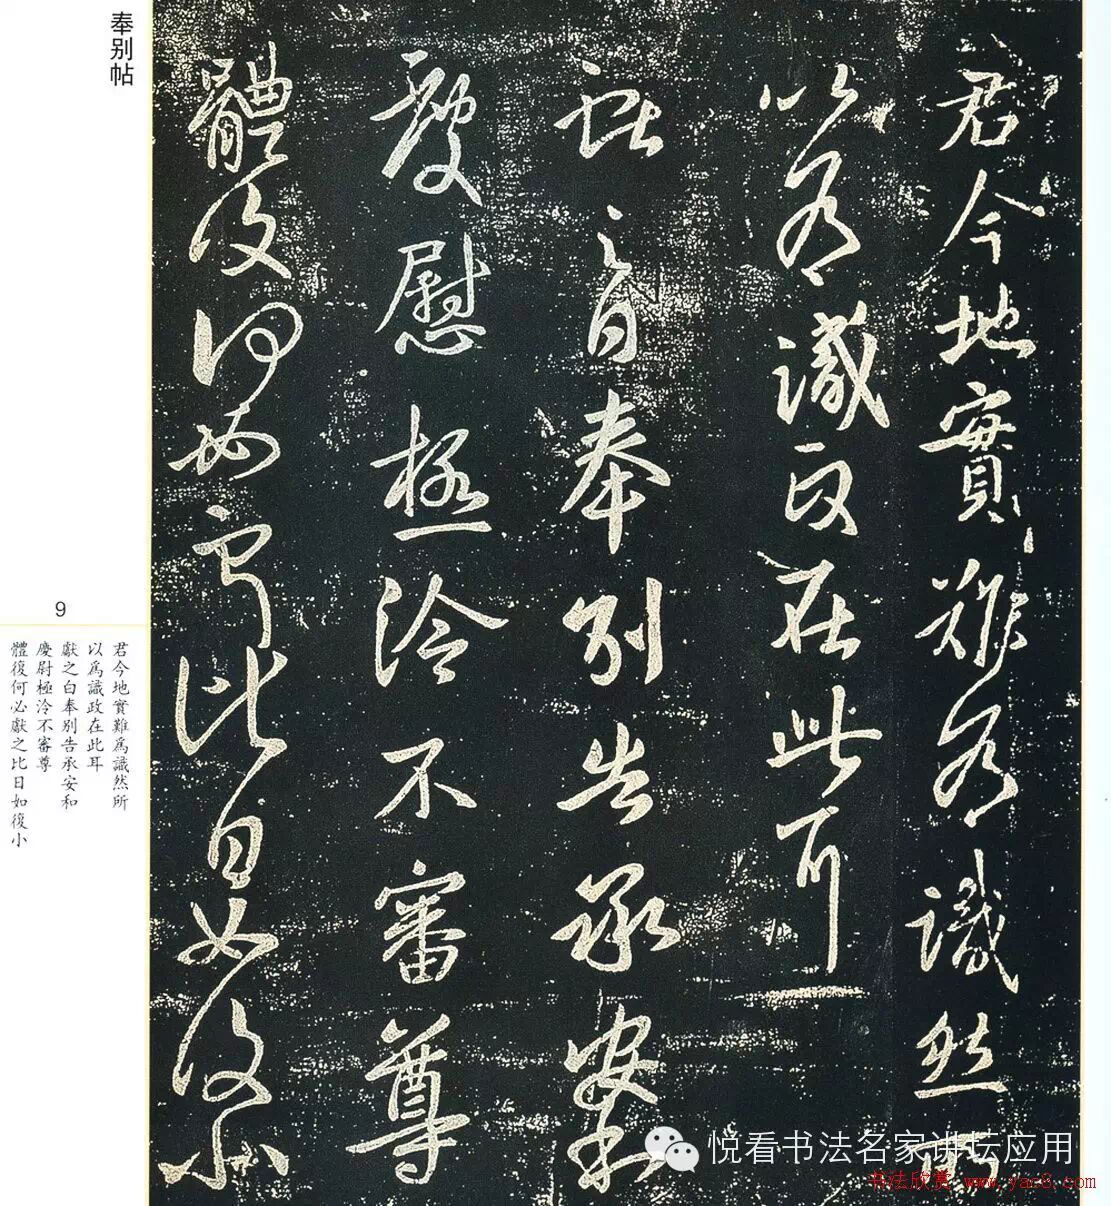 君今地實難為識然所
以為識政在此耳
獻之白奉別告承安和
慶慰極泠不審尊
體復何如寧比日如復小
奉别帖
9
君今地實難為識然所
以為識政在此耳
獻之白奉別告承安和
慶尉極泠不審尊
體復何必獻之比日如復小
悦看书法名家讲坛应用
书法欣赏 www.yac8.com